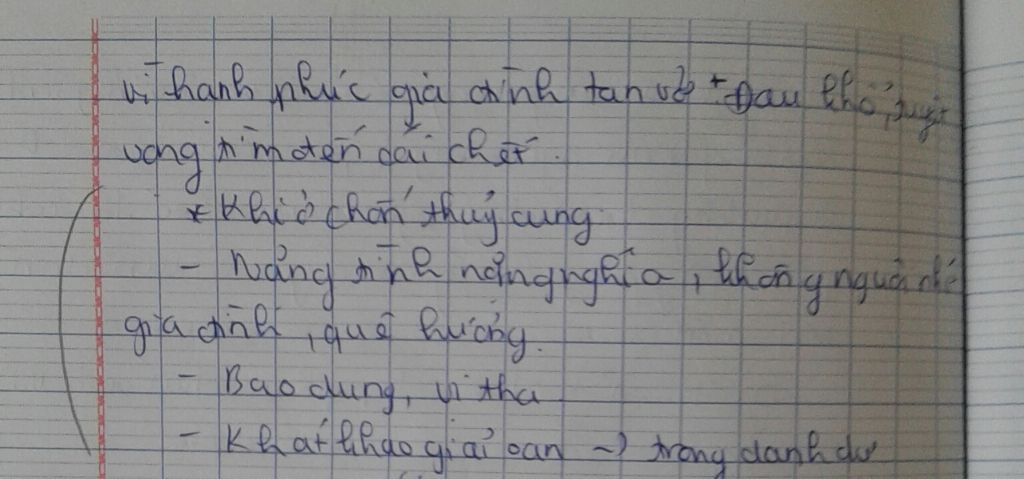 vì hạnh phúc gia đình tan vỡ + Đau khổ, tuyệt
vọng tìm đến cái chết.
* Khi ở chốn thuỷ cung
- Nặng tình nặng nghĩa, không nguôi nhớ
gia đình, quê hương.
- Bao dung, vị tha
- Khát khao giải oan → trọng danh dự